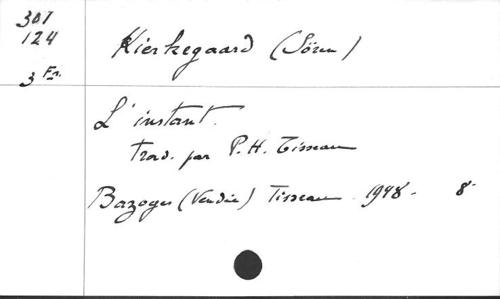 301
124
3 Fr.
Kierkegaard (Sören)
L'instant.
trad. par P.H. Tisseau
Bazoges (Vendée) Tisseau. 1948. 8°